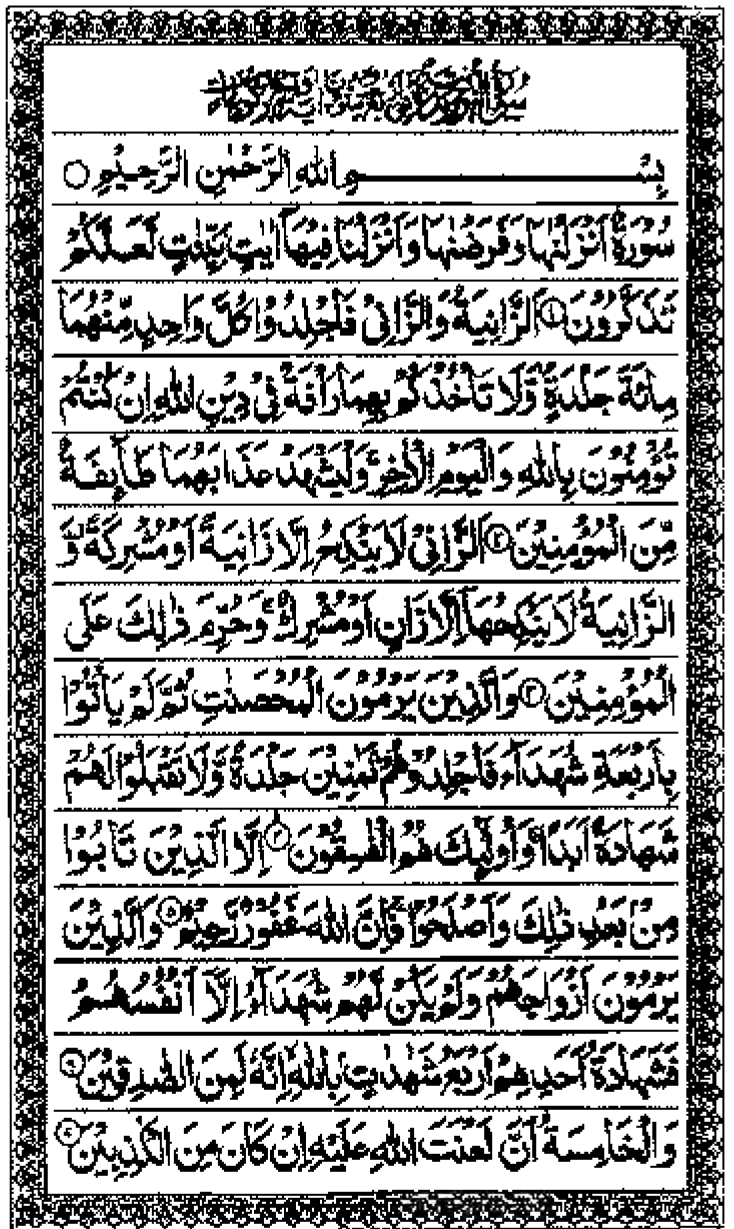 بِسْمِ اللهِ الرَّحْمٰنِ الرَّحِيْمِ ○
سُوْرَةٌ اَنْزَلْنٰهَا وَفَرَضْنٰهَا وَاَنْزَلْنَا فِيْهَآ اٰيٰتٍۭ بَيِّنٰتٍ لَّعَلَّكُمْ
تَذَكَّرُوْنَ ① اَلزَّانِيَةُ وَالزَّانِيْ فَاجْلِدُوْا كُلَّ وَاحِدٍ مِّنْهُمَا
مِائَةَ جَلْدَةٍ وَّلَا تَأْخُذْكُمْ بِهِمَا رَاْفَةٌ فِيْ دِيْنِ اللهِ اِنْ كُنْتُمْ
تُؤْمِنُوْنَ بِاللهِ وَالْيَوْمِ الْاٰخِرِ وَلْيَشْهَدْ عَذَابَهُمَا طَآئِفَةٌ
مِّنَ الْمُؤْمِنِيْنَ ② اَلزَّانِيْ لَا يَنْكِحُ اِلَّا زَانِيَةً اَوْ مُشْرِكَةً وَّ
الزَّانِيَةُ لَا يَنْكِحُهَآ اِلَّا زَانٍ اَوْ مُشْرِكٌ وَحُرِّمَ ذٰلِكَ عَلَى
الْمُؤْمِنِيْنَ ③ وَالَّذِيْنَ يَرْمُوْنَ الْمُحْصَنٰتِ ثُمَّ لَمْ يَاْتُوْا
بِاَرْبَعَةِ شُهَدَآءَ فَاجْلِدُوْهُمْ ثَمٰنِيْنَ جَلْدَةً وَّلَا تَقْبَلُوْا لَهُمْ
شَهَادَةً اَبَدًا وَاُولٰٓئِكَ هُمُ الْفٰسِقُوْنَ ④ اِلَّا الَّذِيْنَ تَابُوْا
مِنْۢ بَعْدِ ذٰلِكَ وَاَصْلَحُوْا فَاِنَّ اللهَ غَفُوْرٌ رَّحِيْمٌ ⑤ وَالَّذِيْنَ
يَرْمُوْنَ اَزْوَاجَهُمْ وَلَمْ يَكُنْ لَّهُمْ شُهَدَآءُ اِلَّآ اَنْفُسُهُمْ
فَشَهَادَةُ اَحَدِهِمْ اَرْبَعُ شَهٰدٰتٍۭ بِاللهِ اِنَّهٗ لَمِنَ الصّٰدِقِيْنَ ⑥
وَالْخَامِسَةُ اَنَّ لَعْنَتَ اللهِ عَلَيْهِ اِنْ كَانَ مِنَ الْكٰذِبِيْنَ ⑦